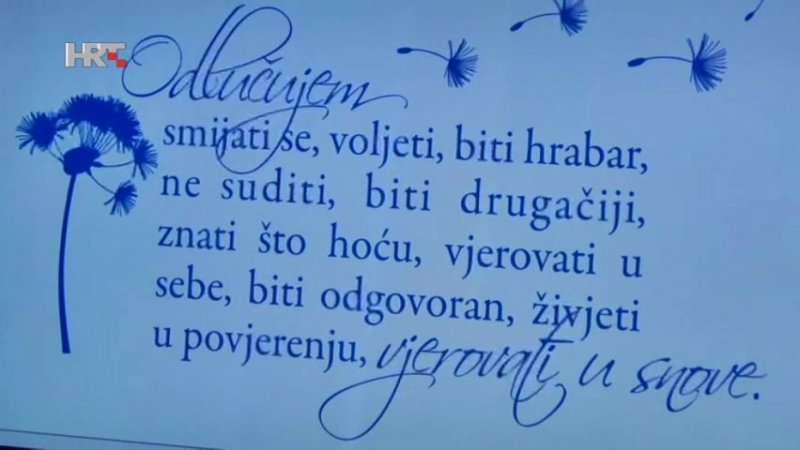 HRT
Odlučujem
smijati se, voljeti, biti hrabar,
ne suditi, biti drugačiji,
znati što hoću, vjerovati u
sebe, biti odgovoran, živjeti
u povjerenju, vjerovati u snove.